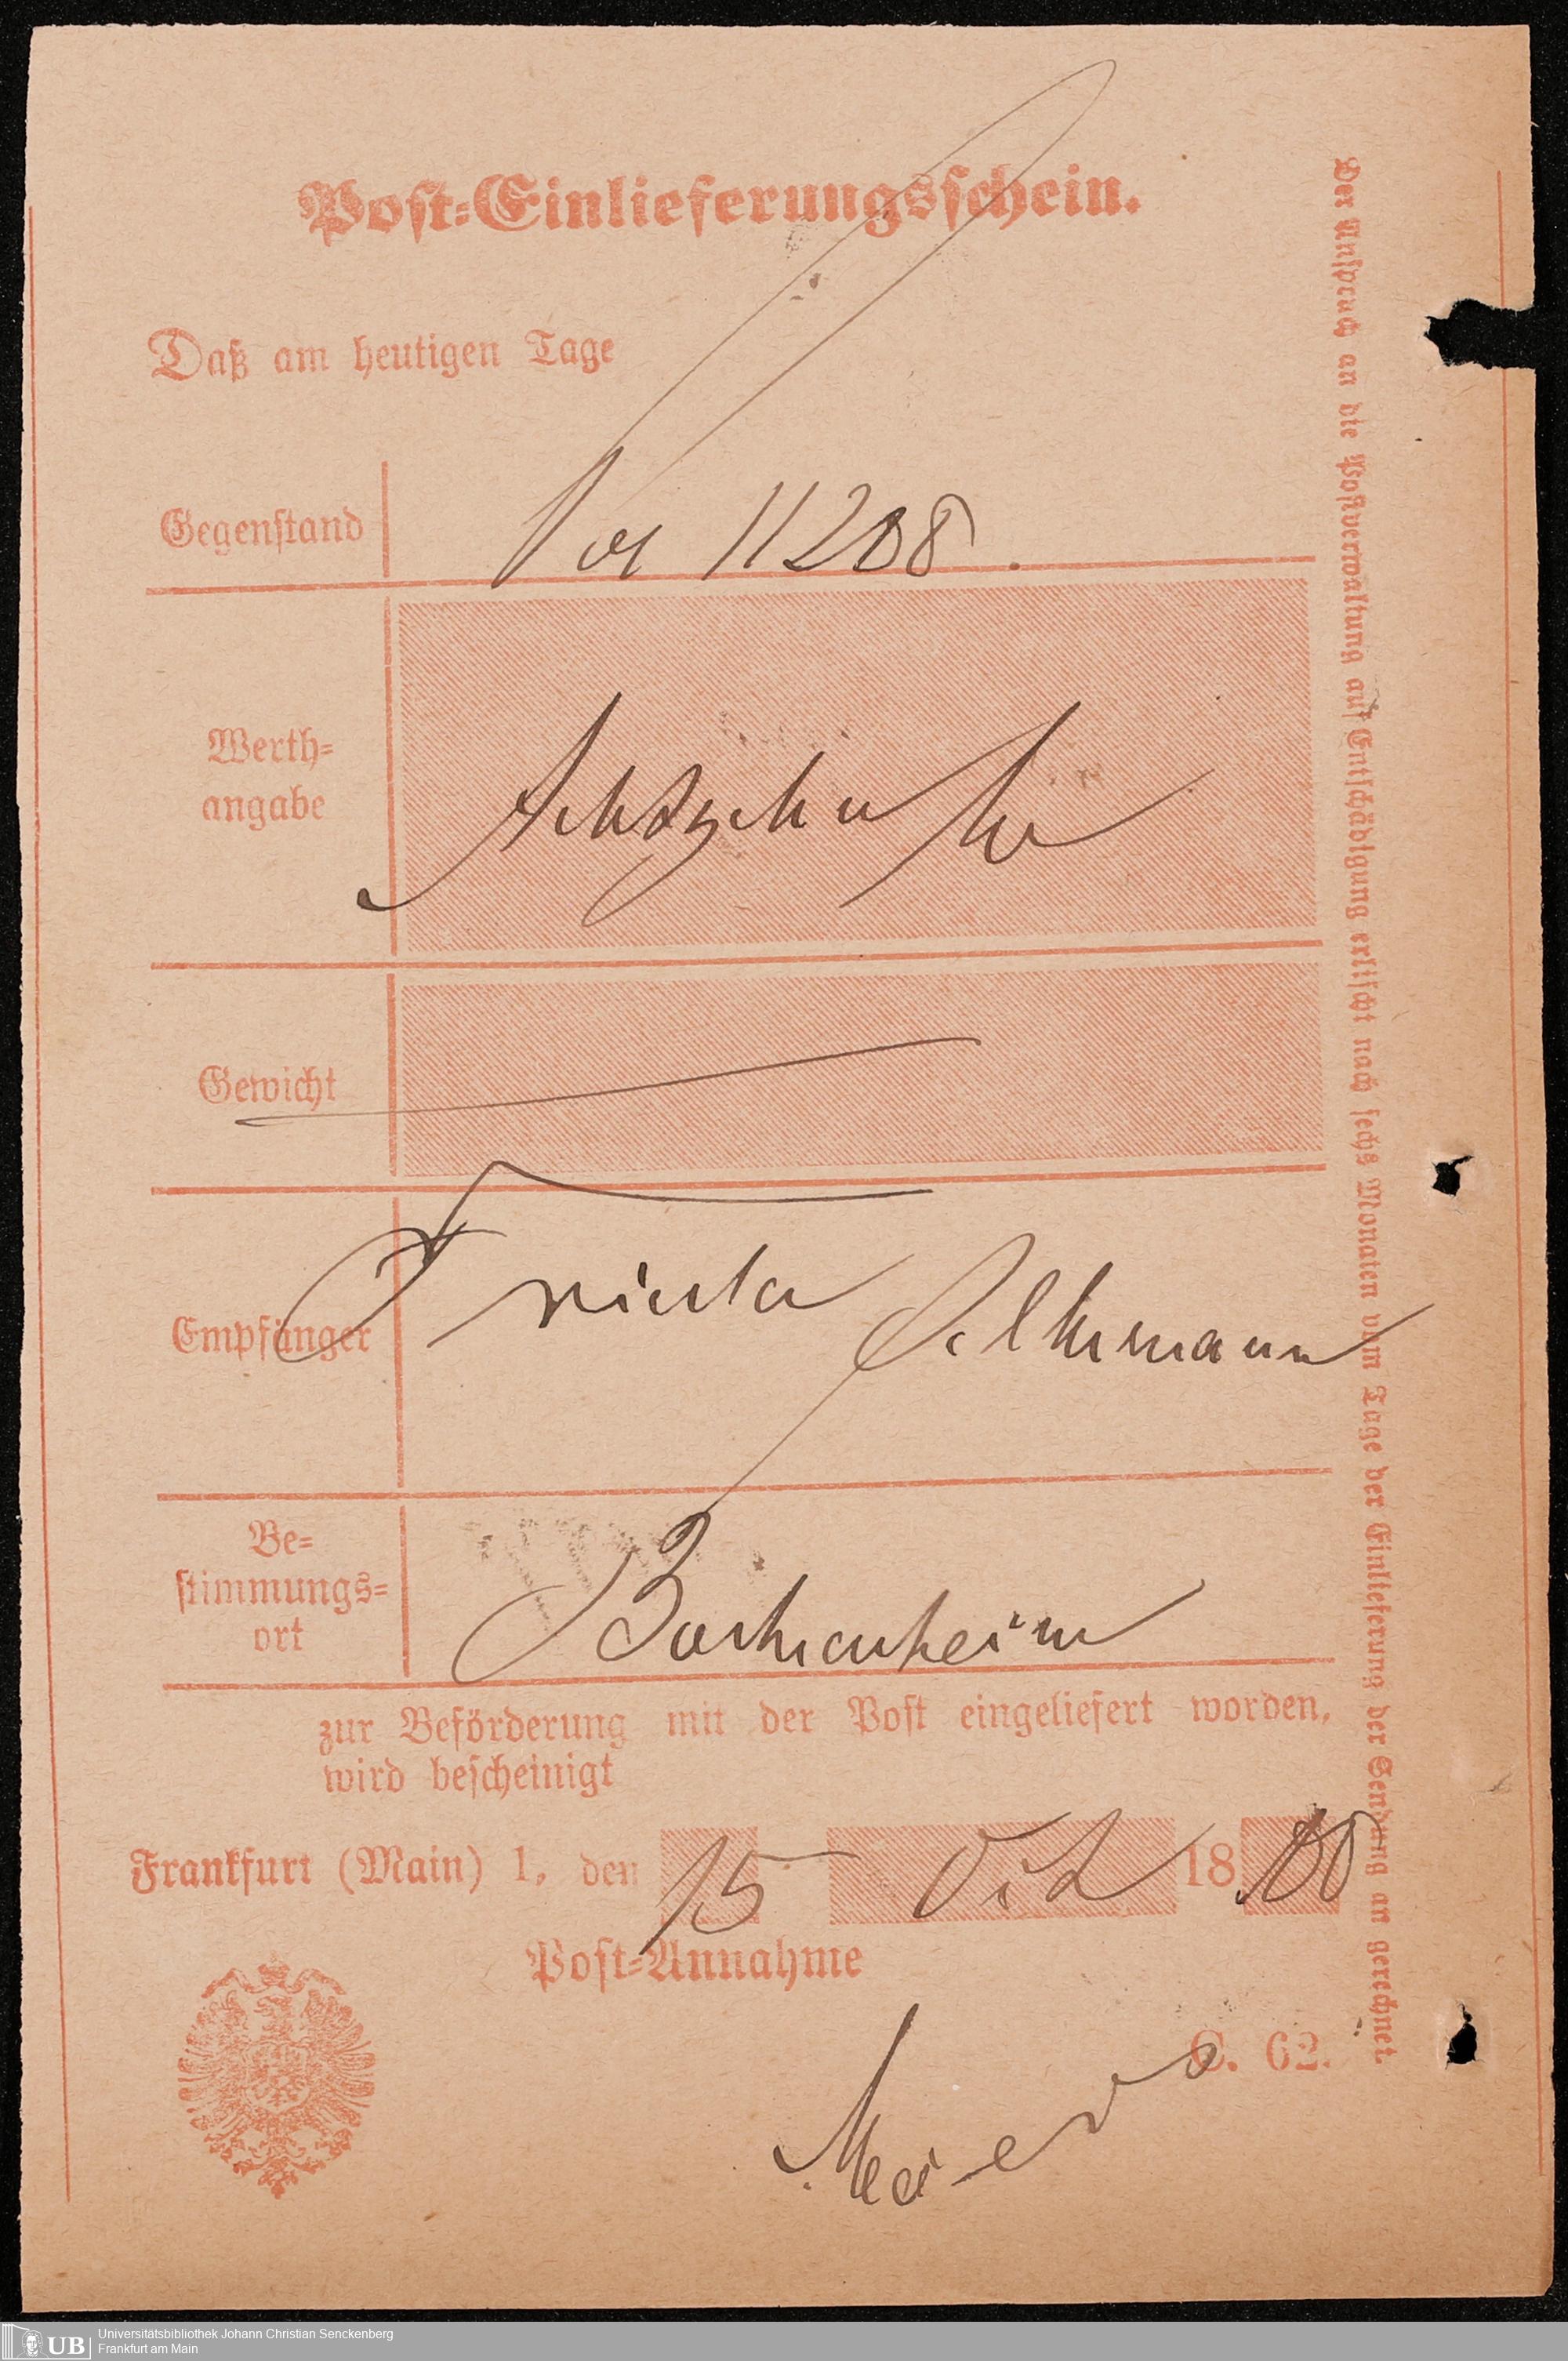 Post-Einlieferungsschein.
Daß am heutigen Tage
Gegenstand
11208.
Werth-
angabe
Gewicht
Empfänger
Be-
stimmungs-
ort
Bockenheim
zur Beförderung mit der Post eingeliefert worden,
wird bescheinigt
Frankfurt (Main) 1, den 15 Oct 18
Post-Annahme
C. 62.
Der Anspruch an die Postverwaltung auf Entschädigung erlischt nach sechs Monaten vom Tage der Einlieferung der Sendung an gerechnet.
UB
Universitätsbibliothek Johann Christian Senckenberg
Frankfurt am Main